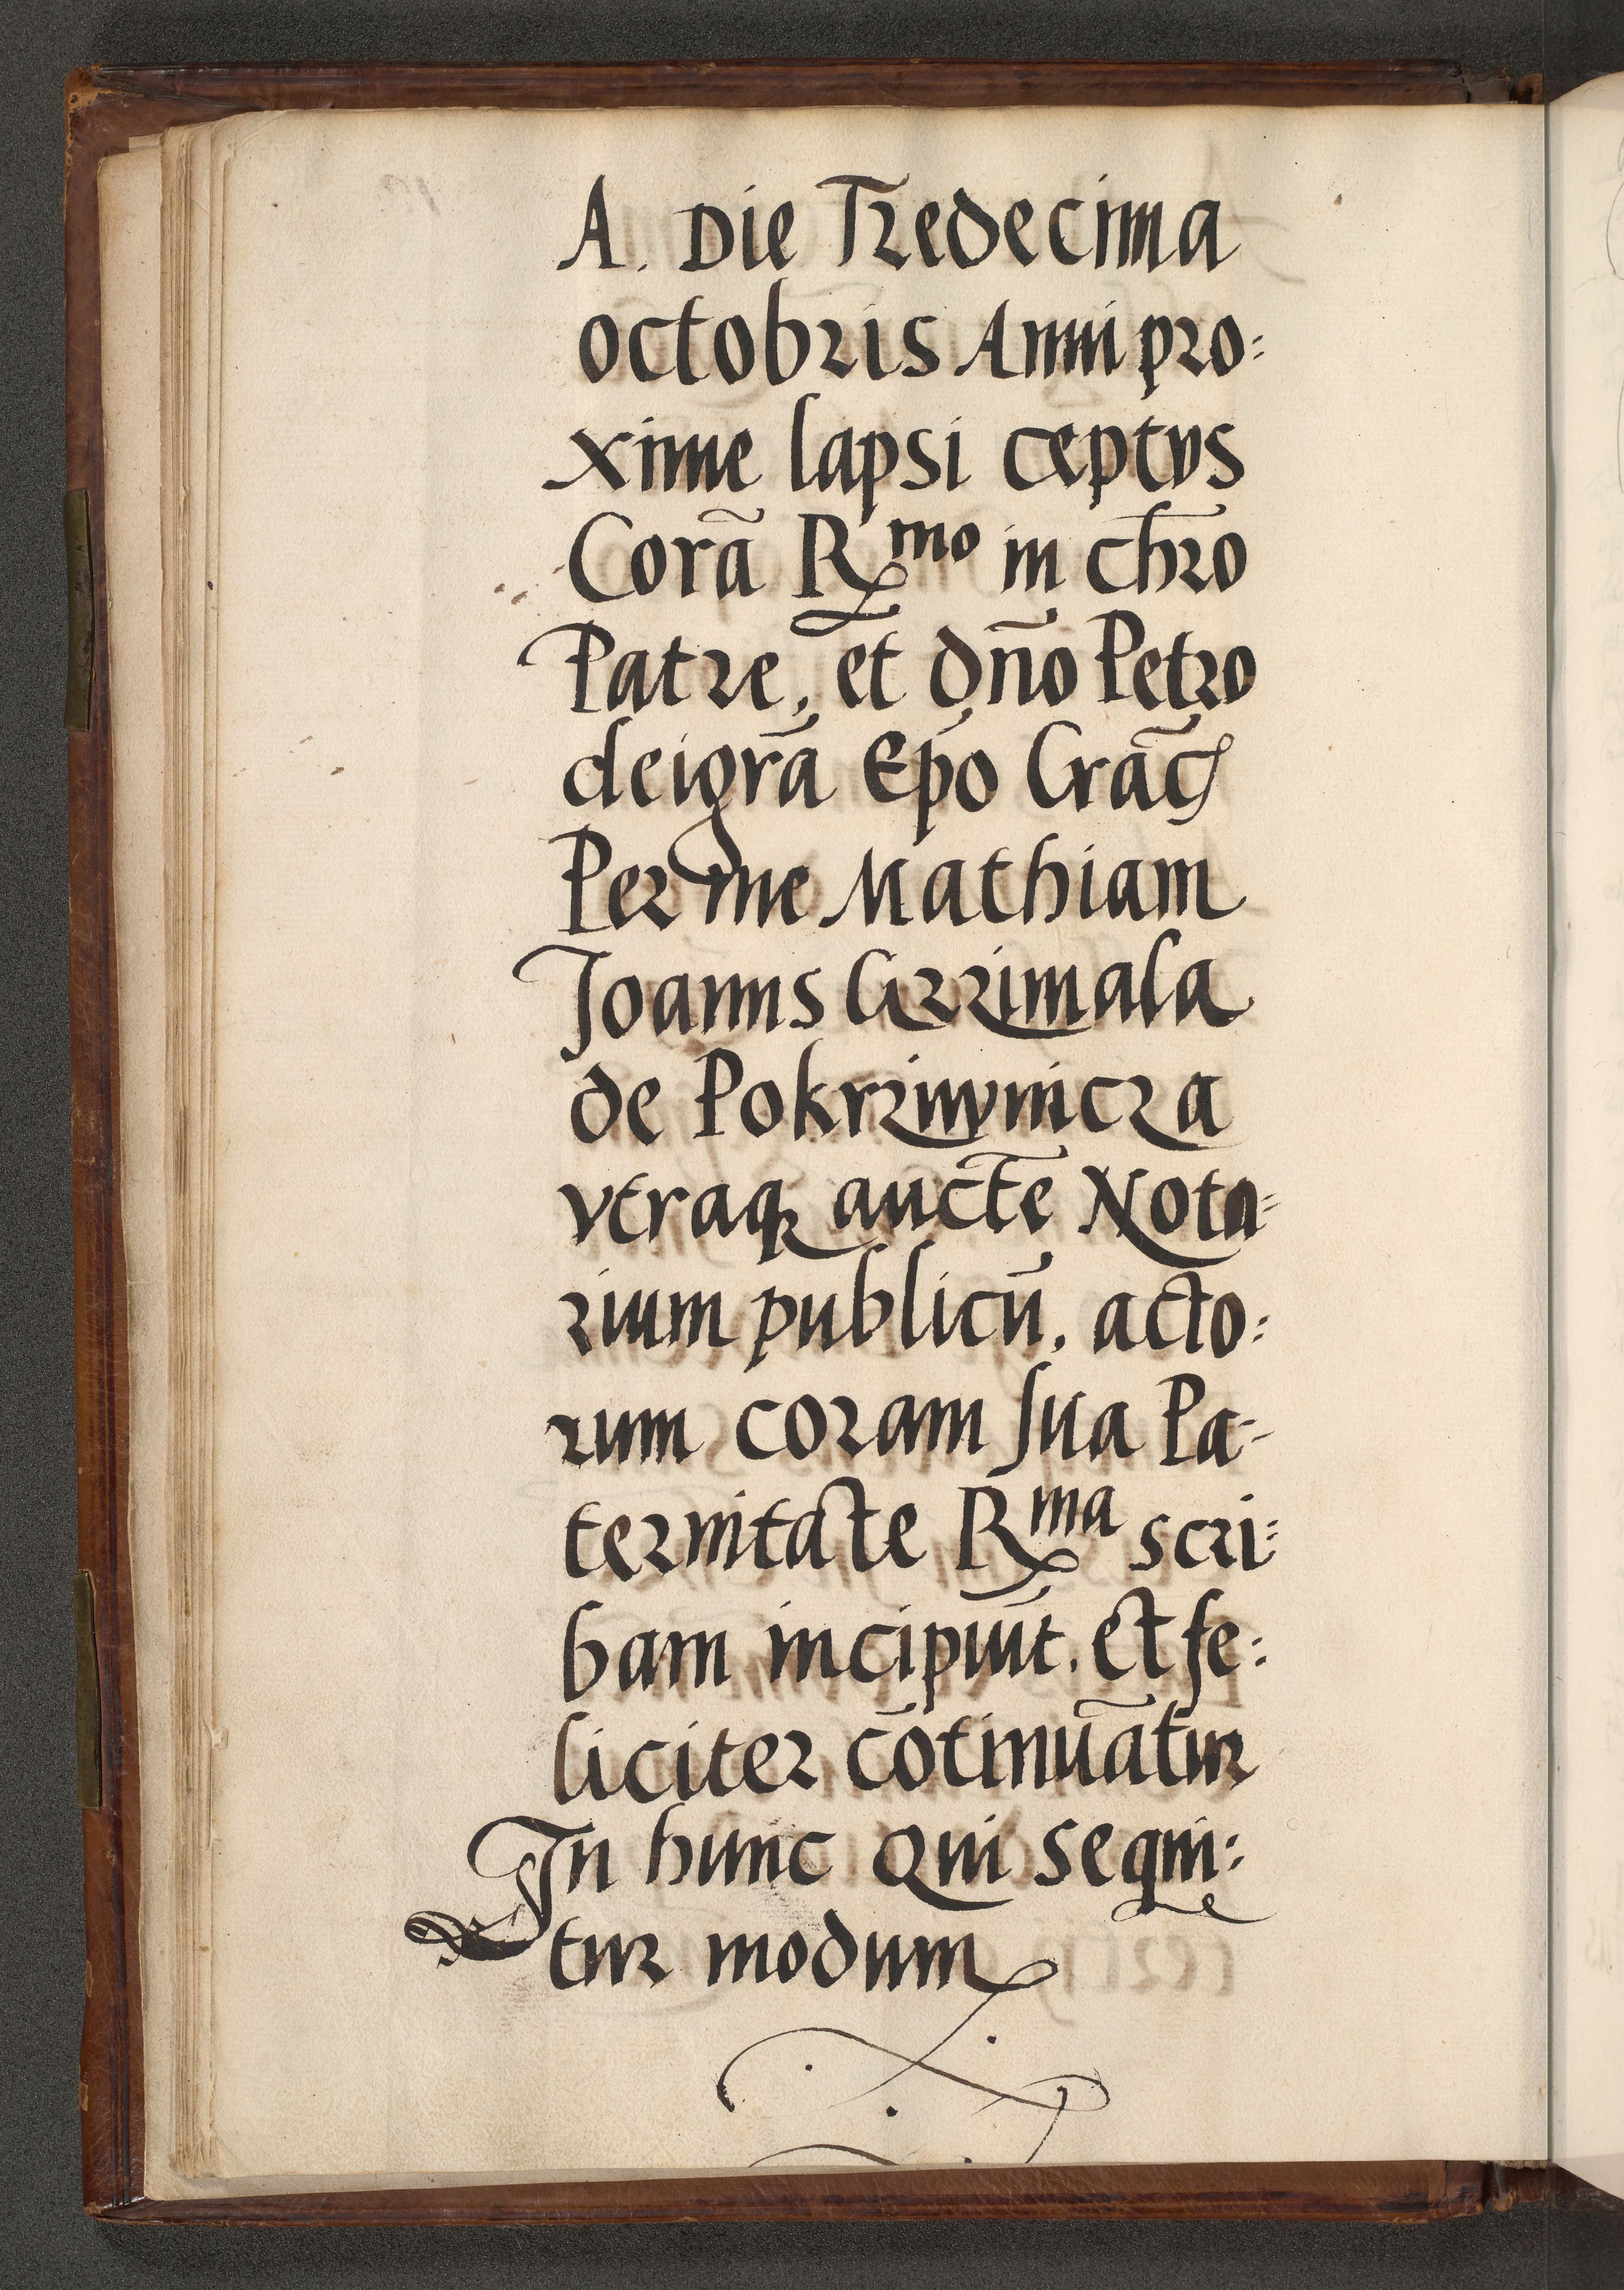 A. Die Tredecima
octobris Anni pro:
xime lapsi ceptus
Corā Rmo in chro
Patre, et dño Petro
dei grā Epo Crac̄
Per me Mathiam
Joannis Grzimala
de Pokrziwnicza
vtraq auctē Nota=
rium publicū. acto:
rum coram sua Pa-
ternitate Rma scri:
bam incipiūt. Et fe:
liciter cōtinuātur
In hunc qui sequi:
tur modum